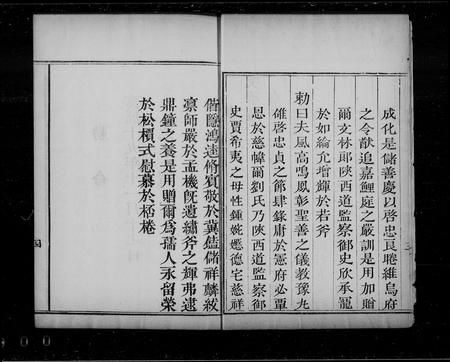 成化是儲善慶以啓忠良睠維烏府
之令猷追嘉鯉庭之嚴訓是用加贈
爾文林郎陝西道監察御史欣承寵
於如綸允增輝於若斧
勅曰夫鳳高鳴鳳彰聖善之儀教豫九
雄啓忠貞之節肆錄庸於憲府必覃
恩於慈幃爾劉氏乃陝西道監察御
史賈希夷之母性鍾婉嫕德宅慈祥
偕隱鴻逵脩賓敬於冀儲祥麟紱
稟師嚴於孟機旣遺繡斧之輝弗逮
鼎鐘之養是用贈爾爲孺人永留榮
於松檟式慰慕於栝棬